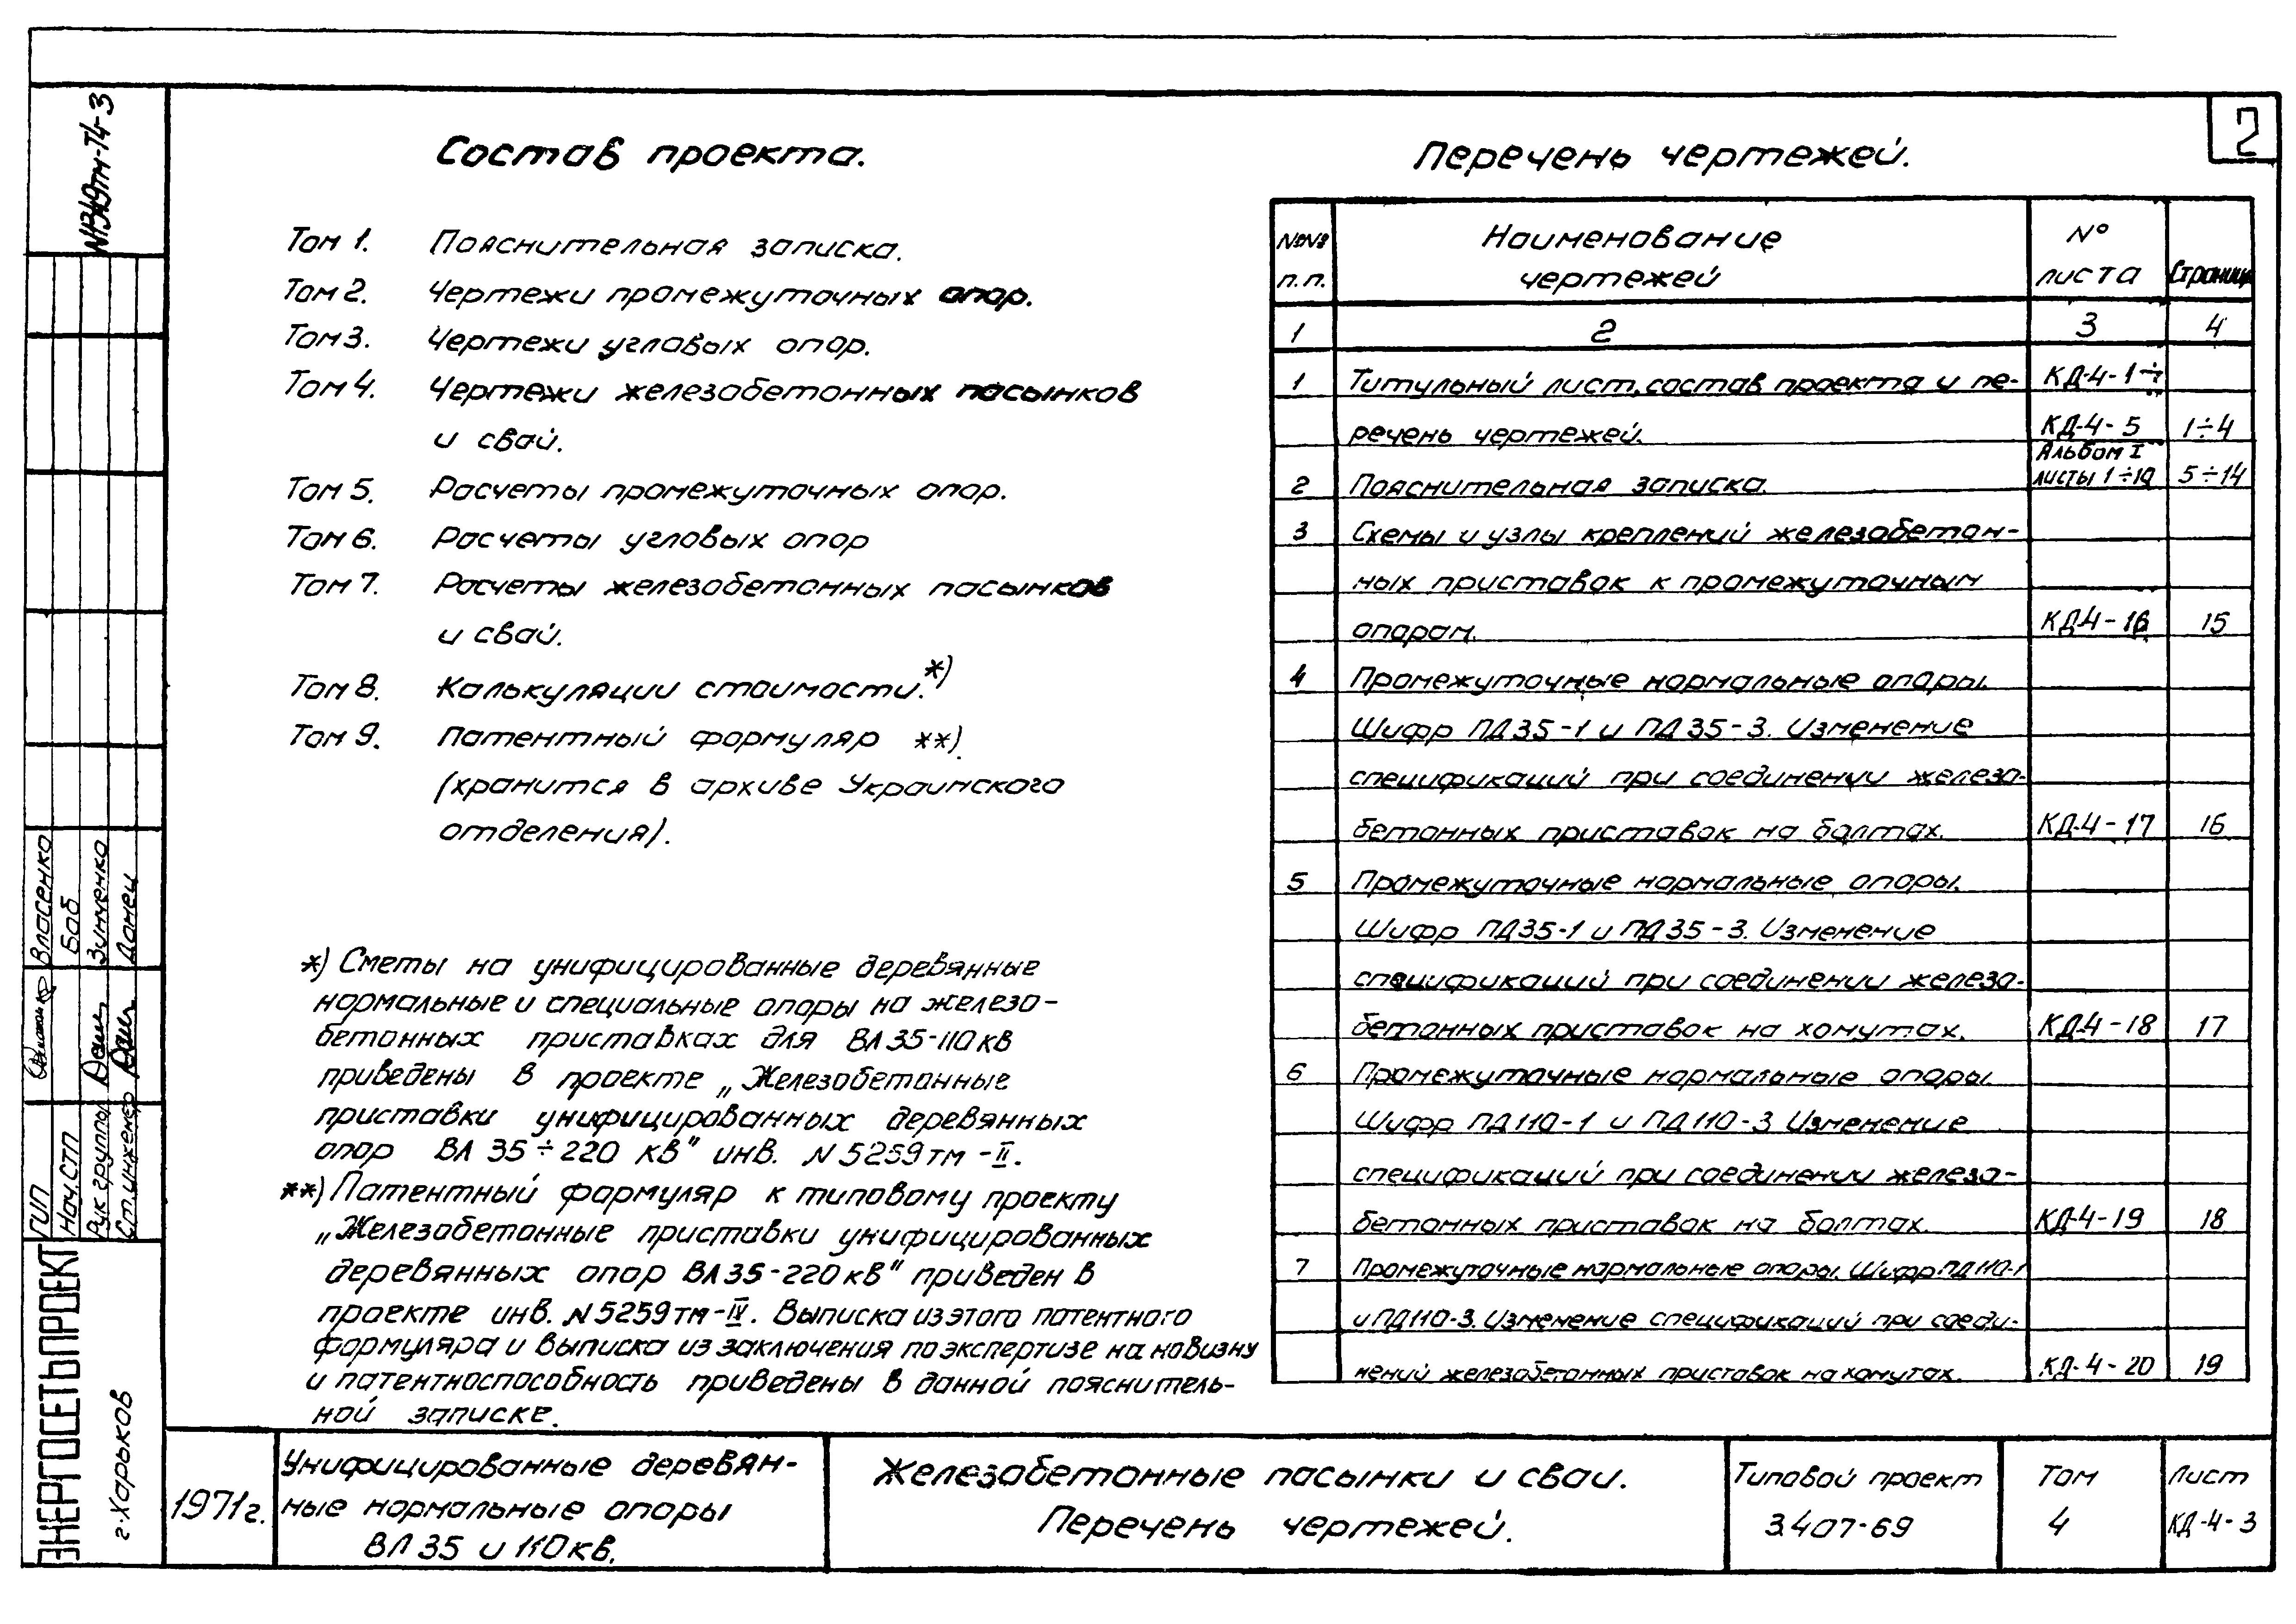 2
N1349тм-Т4-3
Состав проекта.
Том 1. Пояснительная записка.
Том 2. Чертежи промежуточных опор.
Том 3. Чертежи угловых опор.
Том 4. Чертежи железобетонных пасынков
и свай.
Том 5. Расчеты промежуточных опор.
Том 6. Расчеты угловых опор
Том 7. Расчеты железобетонных пасынков
и свай.
Том 8. Калькуляции стоимости.*)
Том 9. Патентный формуляр **).
(хранится в архиве Украинского
отделения).
*) Сметы на унифицированные деревянные
нормальные и специальные опоры на железо-
бетонных приставках для ВЛ 35-110 кв
приведены в проекте „Железобетонные
приставки унифицированных деревянных
опор ВЛ 35÷220 кв" инв. N 5259тм-II.
**) Патентный формуляр к типовому проекту
„Железобетонные приставки унифицированных
деревянных опор ВЛ 35-220 кв" приведен в
проекте инв. N 5259тм-IV. Выписка из этого патентного
формуляра и выписка из заключения по экспертизе на новизну
и патентноспособность приведены в данной пояснитель-
ной записке.
Перечень чертежей.
№№ п.п. Наименование чертежей № листа Страниц
1 2 3 4
1 Титульный лист, состав проекта и пе- КД-4-1÷
речень чертежей. КД-4-5 1÷4
2 Пояснительная записка. Альбом I листы 1÷10 5÷14
3 Схемы и узлы креплений железобетон-
ных приставок к промежуточным
опорам. КД-4-16 15
4 Промежуточные нормальные опоры.
Шифр ПД35-1 и ПД35-3. Изменение
спецификаций при соединении железо-
бетонных приставок на болтах. КД-4-17 16
5 Промежуточные нормальные опоры.
Шифр ПД35-1 и ПД35-3. Изменение
спецификаций при соединении железо-
бетонных приставок на хомутах. КД-4-18 17
6 Промежуточные нормальные опоры.
Шифр ПД110-1 и ПД110-3 Изменение
спецификаций при соединении железо-
бетонных приставок на болтах. КД-4-19 18
7 Промежуточные нормальные опоры. Шифр ПД110-1
и ПД110-3. Изменение спецификаций при соеди-
нений железобетонных приставок на хомутах. КД-4-20 19
ГИП Власенко
Нач. СТП Боб
Рук группы Зинченко
Ст. инженер Донец
ЭНЕРГОСЕТЬПРОЕКТ
г. Харьков
1971г.
Унифицированные деревян-
ные нормальные опоры
ВЛ 35 и 110 кв.
Железобетонные пасынки и сваи.
Перечень чертежей.
Типовой проект
3.407-69
Том
4
Лист
КД-4-3